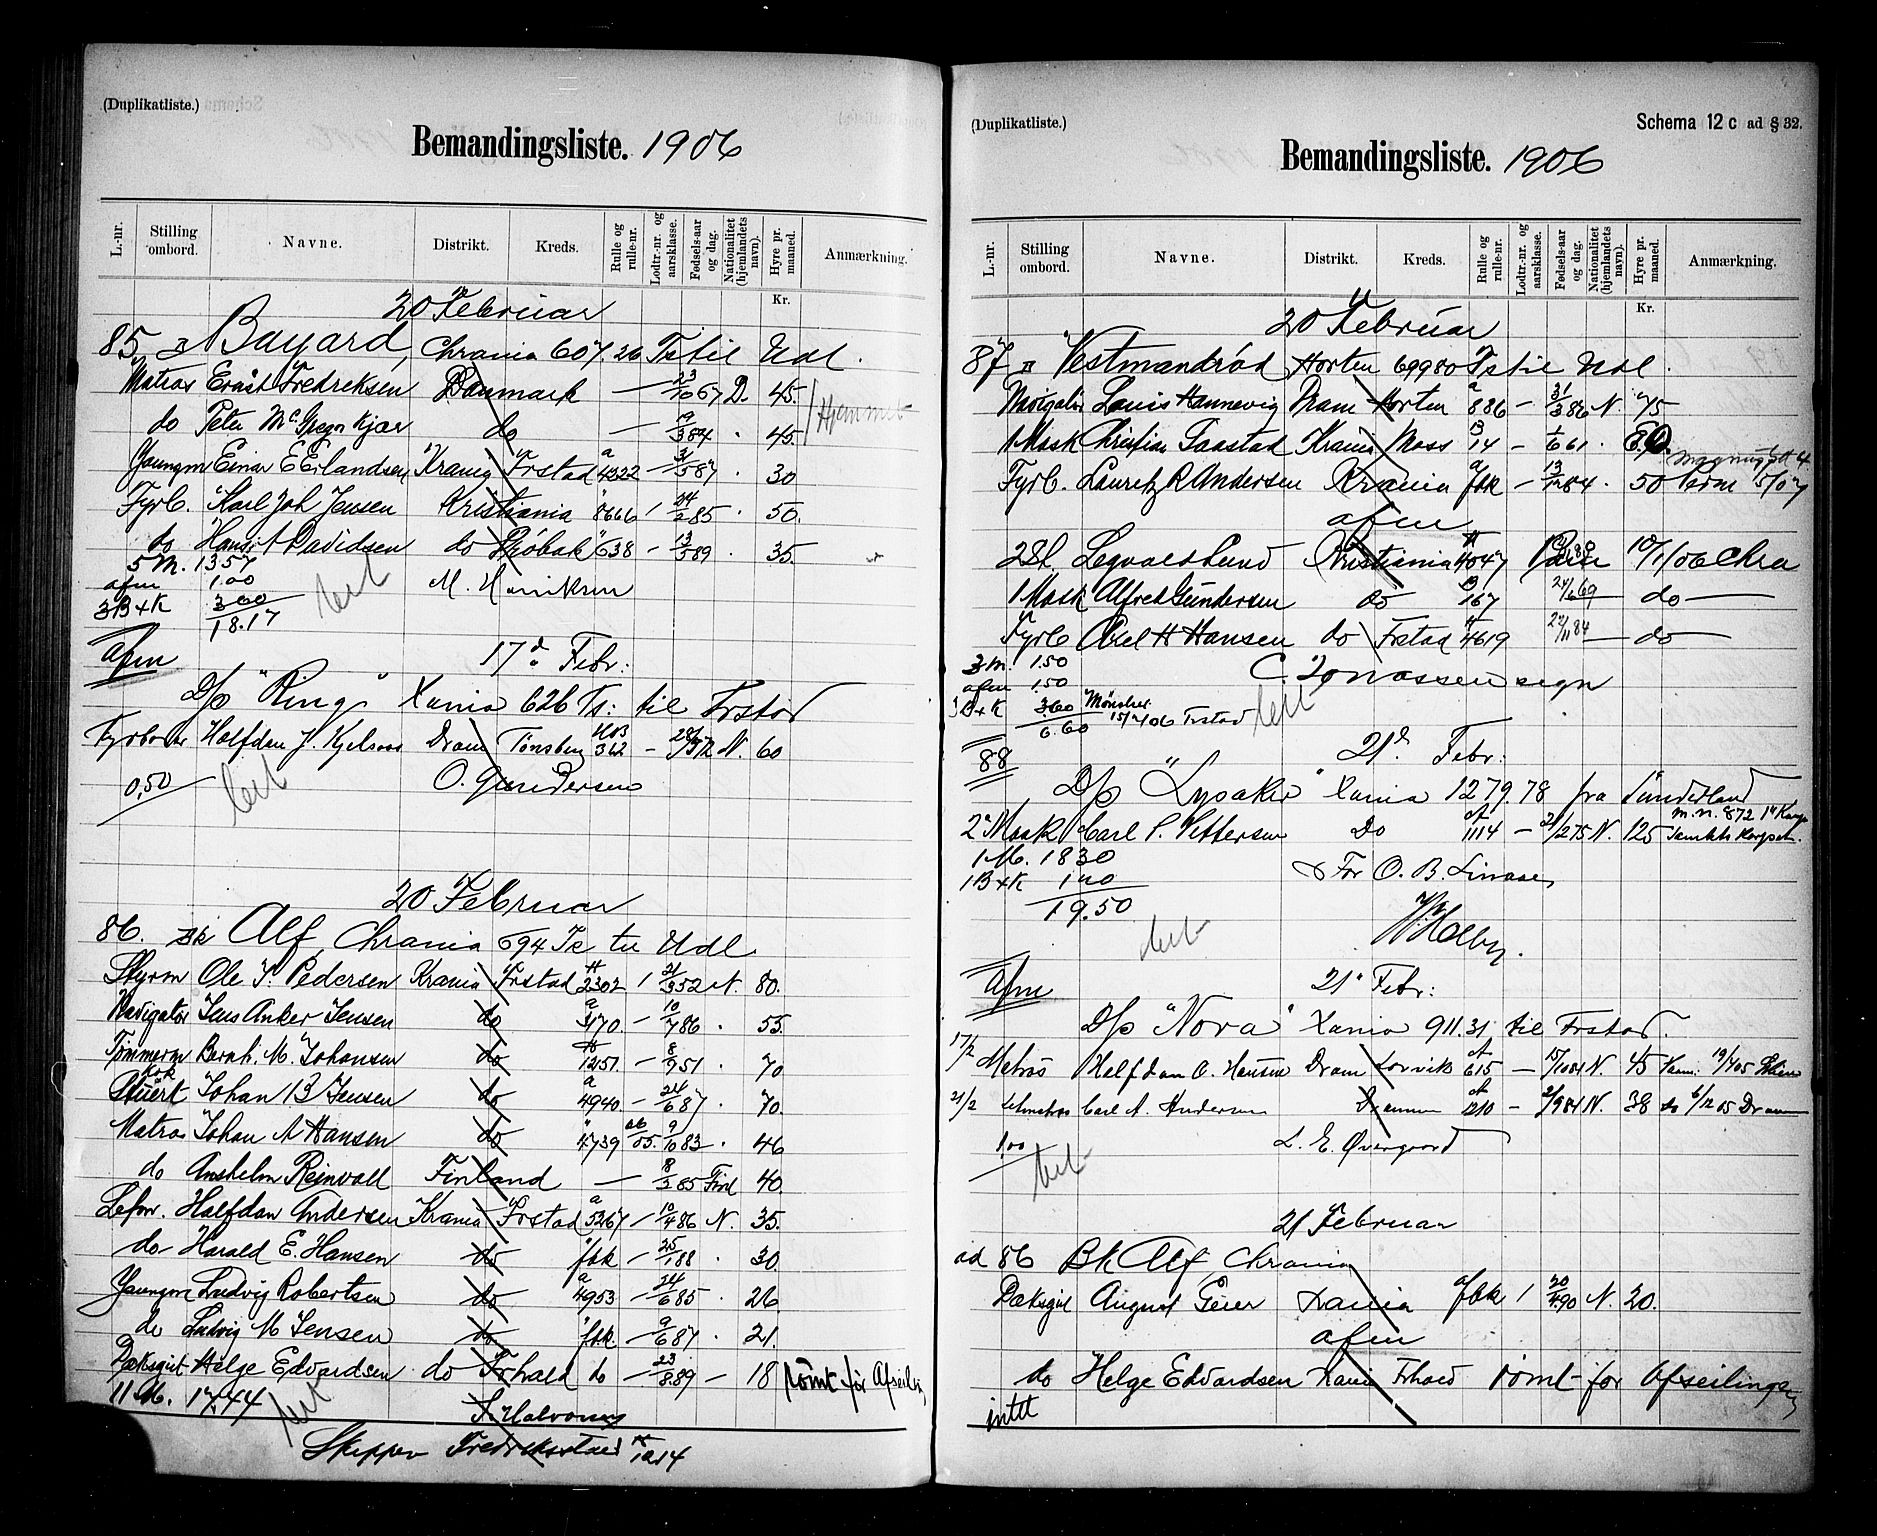 (Duplikatliste.)
Bemandingsliste. 1906
L.-nr. Stilling ombord. Navne. Distrikt. Kreds. Rulle og rulle-nr. Lodtr.-nr. og aarsklasse. Fødsels-aar og dag. Nationalitet (hjemlandets navn). Hyre pr. maaned. Anmærkning.
Kr.
20 Februar
85 Bayard, Chrania 607,26 Ts til Udl.
Matros Ernst Fredreksen Danmark — 23/10 67 D. 45.
do Peter Mc Gregn Kjær do — 19/3 84 . 45.
Youngm Einar E Erlandsen Krania Frstad a 4322 — 3/5 87 . 30
Fyrb. Karl Joh Jensen Kristiania 8666 1 24/2 85 . 50.
do Hans A Davidsen do Drøbak 638 — 13/5 89 . 35.
5 M. 13.57
afm 1.00
3 B+K 3.60
18.17
M. Henriksen
afm 17d Febr:
D/p "Ring" Xania 626 Ts: til Frstad
Fyrbøter Halfdan J. Kjelsaas Dram Tønsberg 362 — 72 N. 60
0,50 O. Gundersen
20 Februar
86. Bk Alf Chrania 694 Ts til Udl
Styrm Ole J. Pedersen Krania Frstad 2302 1 21/3 52 N. 80.
Navigatør Jens Anker Jensen do a 3170 — 10/7 86 . 55.
Tømmerm Bernh. M. Johansen do 1251. — 8/9 51 . 70
kok
Stuert Johan B Jensen do a 4940 — 24/6 87 . 70.
Matros Johan A Hansen do 4739 05. 9/10 83 . 46
do Anshelm Reinvall Finland — 8/2 85 Finl 40.
Letm. Halfdan Andersen Krania Frstad a 5267 1 10/4 86 N. 35.
do Harald E. Hansen do fbk — 25/1 88 . 30.
Youngm Ludvig Robertsen do a 4953 — 24/6 85 . 26
do Ludvig M Jensen do fbk. — 9/6 87 . 21.
Dæksgut Helge Edvardsen do Frhald do — 23/8 89 — 18 rømt før Afseilin
11 M. 17.44
Skipper Fredriksstad 1014
(Duplikatliste.)
Schema 12 c ad § 32.
Bemandingsliste. 1906
L.-nr. Stilling ombord. Navne. Distrikt. Kreds. Rulle og rulle-nr. Lodtr.-nr. og aarsklasse. Fødsels-aar og dag. Nationalitet (hjemlandets navn). Hyre pr. maaned. Anmærkning.
Kr.
20 Februar
87 Vestmandrød Horten 699,80 Ts til Udl.
Navigatør Louis Hannevig Dram Horten a 886 — 31/3 86 N. 75
1 Mask Christian Taastad Krania Moss 14 — 1/6 61 .
Fyrb. Lauretz R Andersen Krania a fbk — 13/1 84 . 50
afm
2 St. Lund Kristiania 4047 10/1/06 Chra
1 Mask Alfred Gundersen do 167 24/6 69 — do —
Fyrb Axel H Hansen do Frstad 4619 22/11 84 — do —
3 M. 1.50
afm 1.50
B+K 3.60
6.60
Mønster 15/2/06 Frstad
C. Jonassen sign
88 21d. Febr:
D/p "Lysaker" Xania 1279.78 fra Sunderland
2 Mask Carl P. Pettersen Do 1114 — 2/2 75 N. 125
m.n. 872
1 M. 18.30
1 B+K 1.20
19.50
For O. B.
afm 21d Febr:
D/p "Nova" Xania 911.31 til Frstad.
17/2 Matros Halfdan O. Hansen Dram Larvik 615 — 15/10 84 N. 45
21/2 Letmatros Carl A. Andersen Drammen 210 — 2/9 84 N. 38 do 6/12 05 Dram
1,00 L. E. Øvergaard
21 Februar
ad 86 Bk Alf Chrania
Dæksgut August Geier Xania a fbk 1 20/4 90 N. 20.
afm
do Helge Edvardsen Xania Frhald rømt for Afseilingen
intet